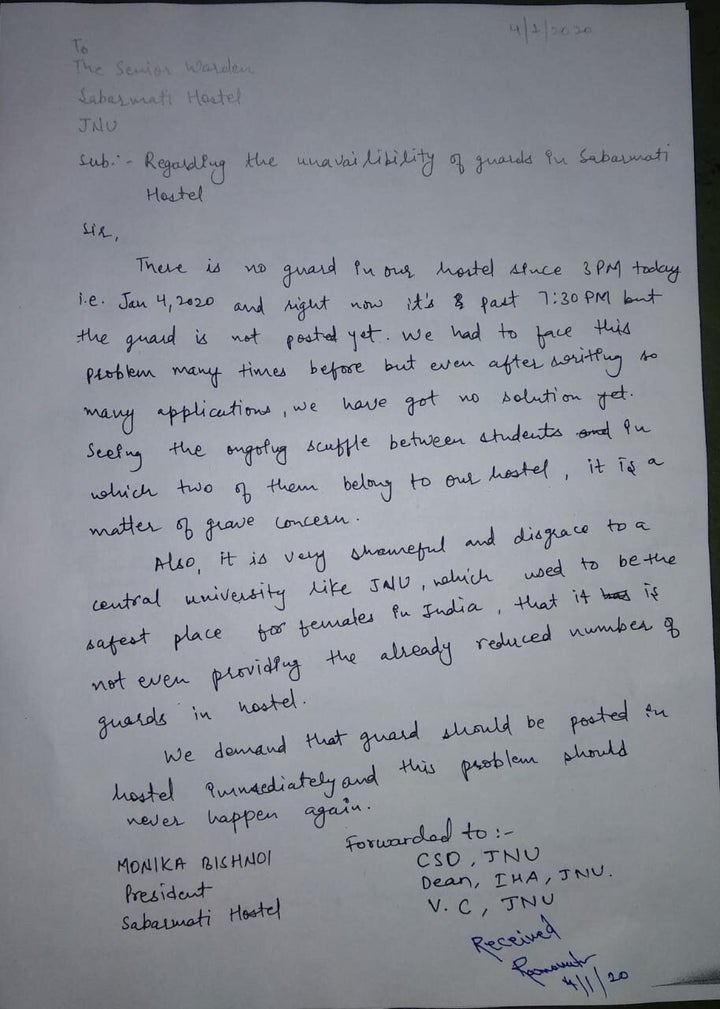 4/1/2020
To
The Senior Warden
Sabarmati Hostel
JNU
Sub:- Regarding the unavailibility of guards in Sabarmati
Hostel
Sir,
There is no guard in our hostel since 3 PM today
i.e. Jan 4, 2020 and right now it's past 7:30 PM but
the guard is not posted yet. We had to face this
problem many times before but even after writing so
many applications, we have got no solution yet.
Seeing the ongoing scuffle between students in
which two of them belong to our hostel, it is a
matter of grave concern.
Also, it is very shameful and disgrace to a
central university like JNU, which used to be the
safest place for females in India, that it is
not even providing the already reduced number of
guards in hostel.
We demand that guard should be posted in
hostel immediately and this problem should
never happen again.
MONIKA BISHNOI
President
Sabarmati Hostel
Forwarded to :-
CSO, JNU
Dean, IHA, JNU.
V.C, JNU
Received
4/1/20